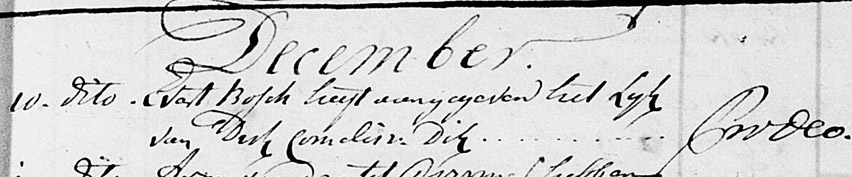 December.
10. dito. Evert Bosch heeft aengegeven het Lyk
van Dirk Cornelisz. Dik .......... Pro Deo.
dito